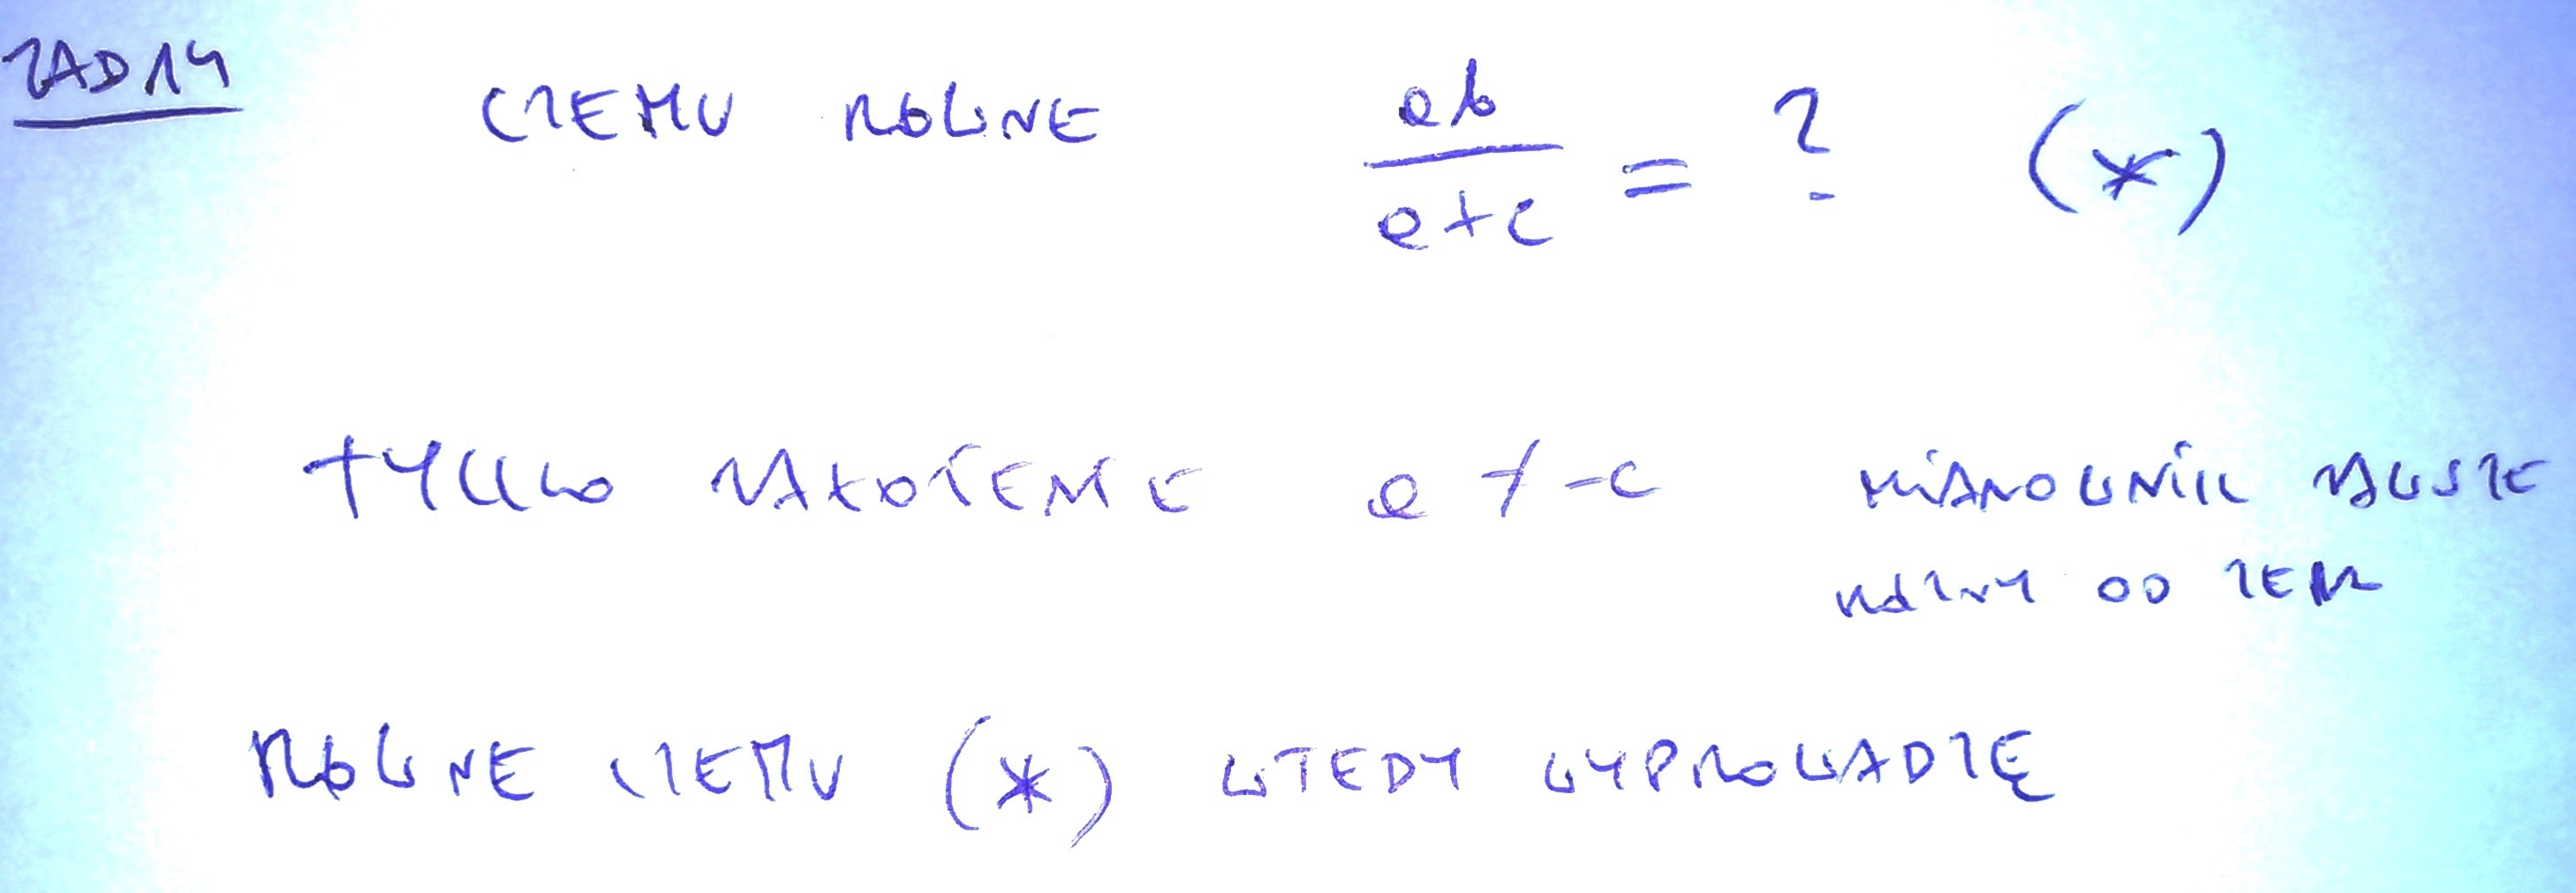 ZAD 14
CZEMU RÓWNE ab/a+c = ? (*)
TYLKO ZAŁOŻENIE a ≠ -c MIANOWNIK ZAWSZE
RÓŻNY OD ZERA
RÓWNE CZEMU (*) WTEDY WYPROWADZĘ